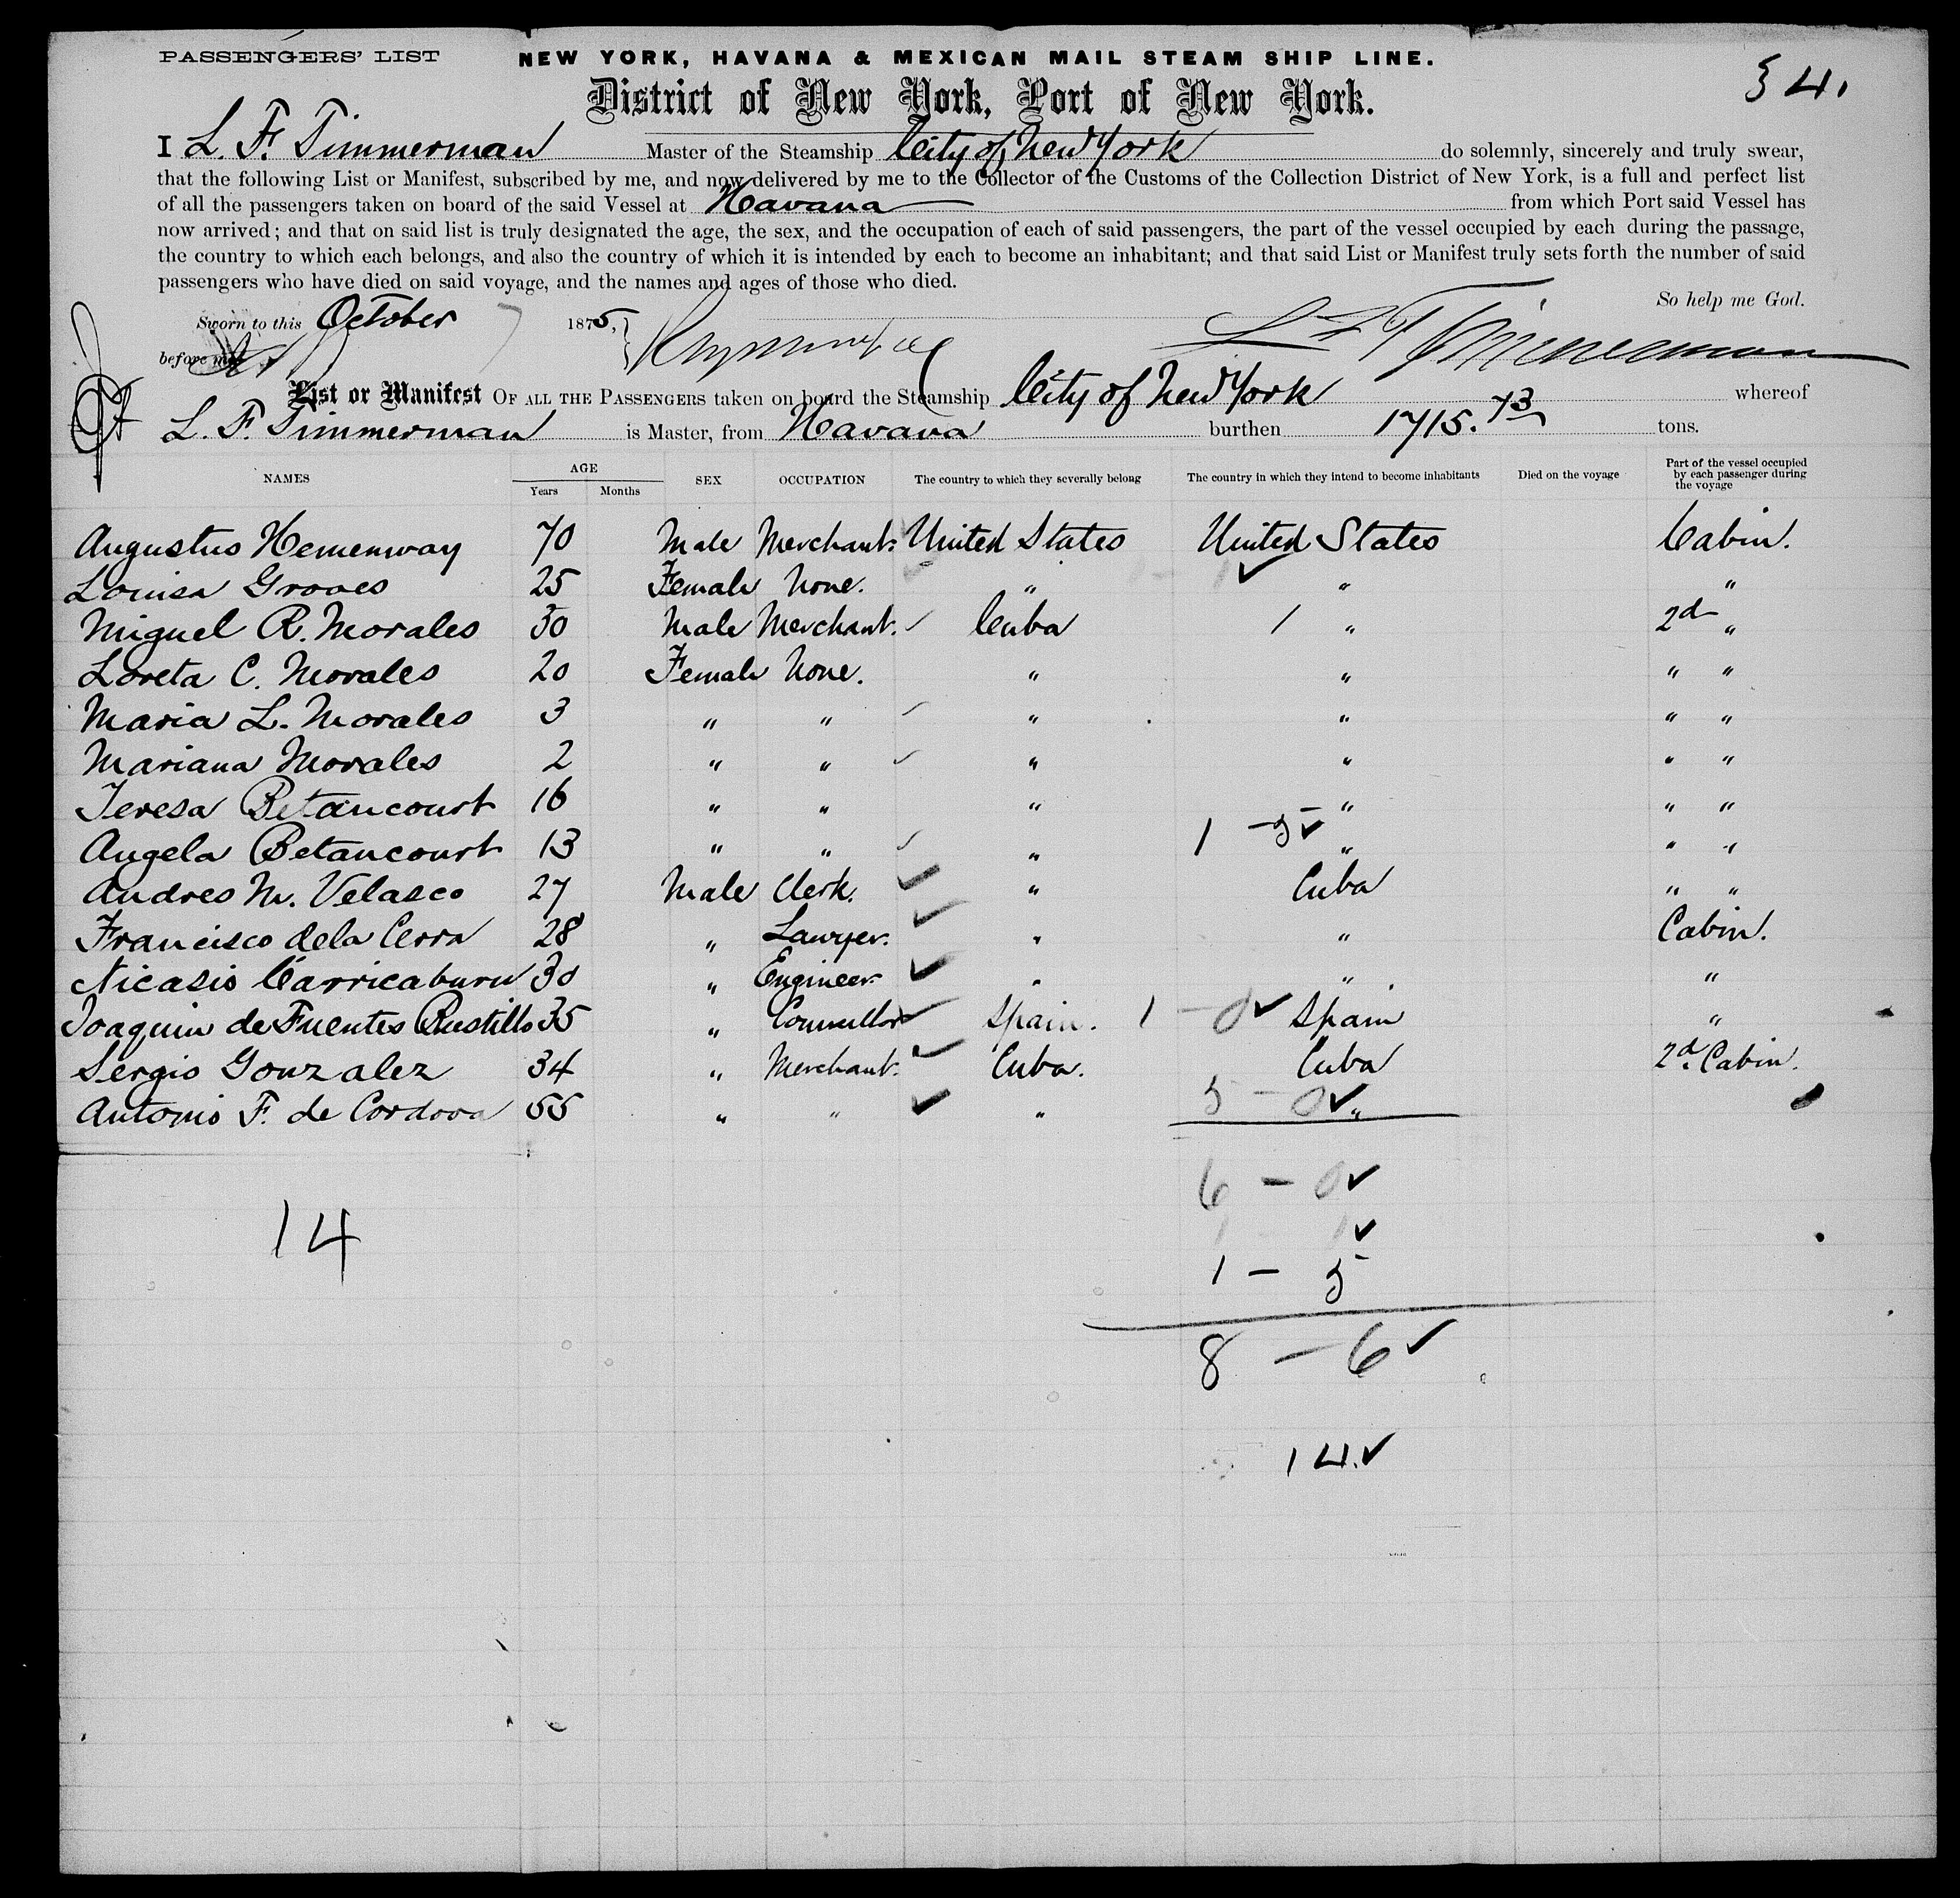 PASSENGERS' LIST
NEW YORK, HAVANA & MEXICAN MAIL STEAM SHIP LINE.
District of New York, Port of New York.
§ 41
I L. F. Timmerman Master of the Steamship City of New York do solemnly, sincerely and truly swear,
that the following List or Manifest, subscribed by me, and now delivered by me to the Collector of the Customs of the Collection District of New York, is a full and perfect list
of all the passengers taken on board of the said Vessel at Havana from which Port said Vessel has
now arrived; and that on said list is truly designated the age, the sex, and the occupation of each of said passengers, the part of the vessel occupied by each during the passage,
the country to which each belongs, and also the country of which it is intended by each to become an inhabitant; and that said List or Manifest truly sets forth the number of said
passengers who have died on said voyage, and the names and ages of those who died.
So help me God.
Sworn to this October 7 1875, L F Timmerman
before me
List or Manifest OF ALL THE PASSENGERS taken on board the Steamship City of New York whereof
L. F. Timmerman is Master, from Havana burthen 1715.73 tons.
NAMES AGE Years Months SEX OCCUPATION The country to which they severally belong The country in which they intend to become inhabitants Died on the voyage Part of the vessel occupied by each passenger during the voyage
Augustus Hemenway 70 Male Merchant. United States United States Cabin.
Louisa Groves 25 Female None. " " "
Miguel R. Morales 30 Male Merchant. Cuba 1 " 2d "
Loreta C. Morales 20 Female None. " " " "
Maria L. Morales 3 " " " " " "
Mariana Morales 2 " " " " " "
Teresa Betancourt 16 " " " " " "
Angela Betancourt 13 " " " 1 - 5 " " "
Andres M. Velasco 27 Male Clerk. " Cuba " "
Francisco dela Cerra 28 " Lawyer. " " Cabin.
Nicasio Carricaburu 30 " Engineer. " " "
Joaquin de Fuentes Bustillo 35 " Councillor Spain. 1 - 0 Spain "
Sergio Gonzalez 34 " Merchant. Cuba. Cuba 2d. Cabin.
Antonio F. de Cordova 55 " " " 5 - 0 "
6 - 0
14
1 1
1 - 5
8 - 6
14.